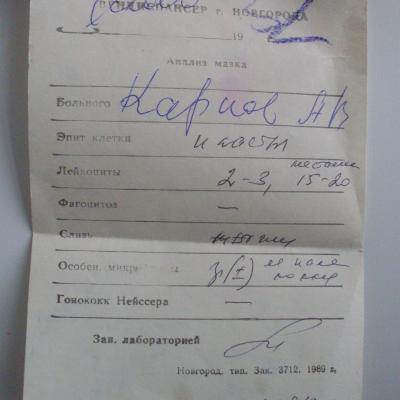 ВЕНДИСПАНСЕР г. НОВГОРОДА
19
Анализ мазка
Больного Карпов АВ
Эпит клетки пласты
Лейкоциты 2-3, местами 15-20
Фагоцитоз —
Слизь
Особен.
Гонококк Нейссера —
Зав. лабораторией
Новгород. тип. Зак. 3712. 1989 г.